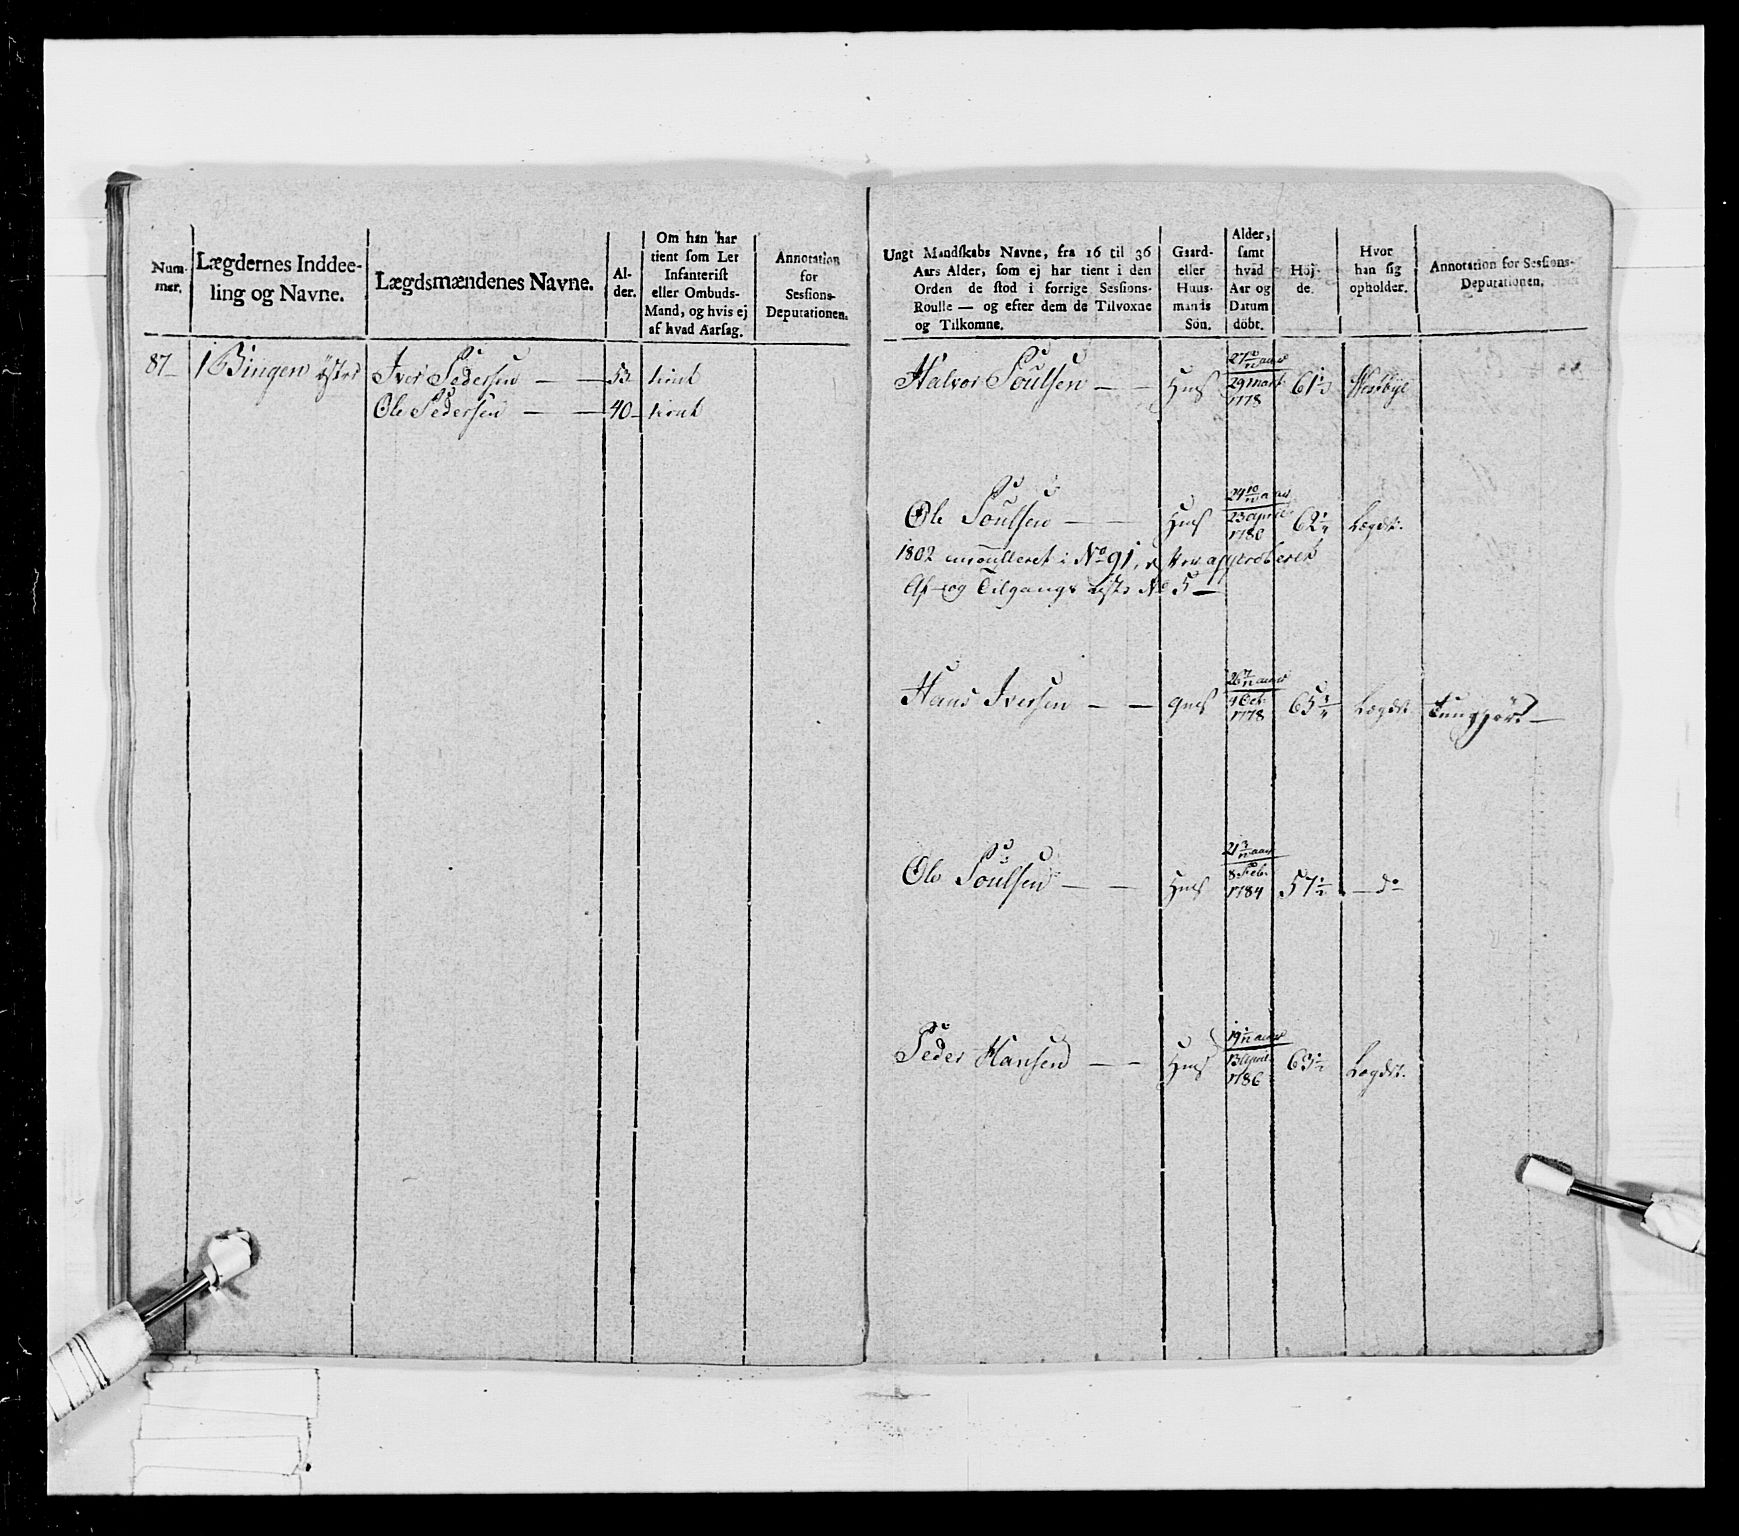 Num-
mer.
Lægdernes Inddee-
ling og Navne.
Lægdsmændenes Navne.
Al-
der.
Om han har
tient som Let
Infanterist
eller Ombuds-
Mand, og hvis ej
af hvad Aarsag.
Annotation
for
Sessions-
Deputationen.
87 1 Bingen østre Iver Pedersen 53 tient
Ole Pedersen 40 tient
Ungt Mandskabs Navne, fra 16 til 36
Aars Alder, som ej har tient i den
Orden de stod i forrige Sessions-
Roulle — og efter dem de Tilvoxne
og Tilkomne.
Gaard-
eller
Huus-
mands
Sön.
Alder,
samt
hvad
Aar og
Datum
döbt.
Höj-
de.
Hvor
han sig
opholder.
Annotation for Sessions-
Deputationen.
Halvor Poulsen — — Hms 27 aar 29 Mart: 1778 61 Westbye
Ole Poulsen — — Hms 24 10/12 aar 23 April 1780 62 1/4 Lægdet.
1802 enroulleret i No 91, approberet
Af- og Tilgangs Liste No 5 —
Hans Iversen — — Gms 26 7/12 aar 4 Oct: 1778 65 1/4 Lægdet
Ole Poulsen — — Hms 21 3/12 aar 8 Feb. 1784 57 1/2 — do
Peder Hansen — — Hms 19 1/12 aar 13 April 1786 63 1/2 Lægdet.